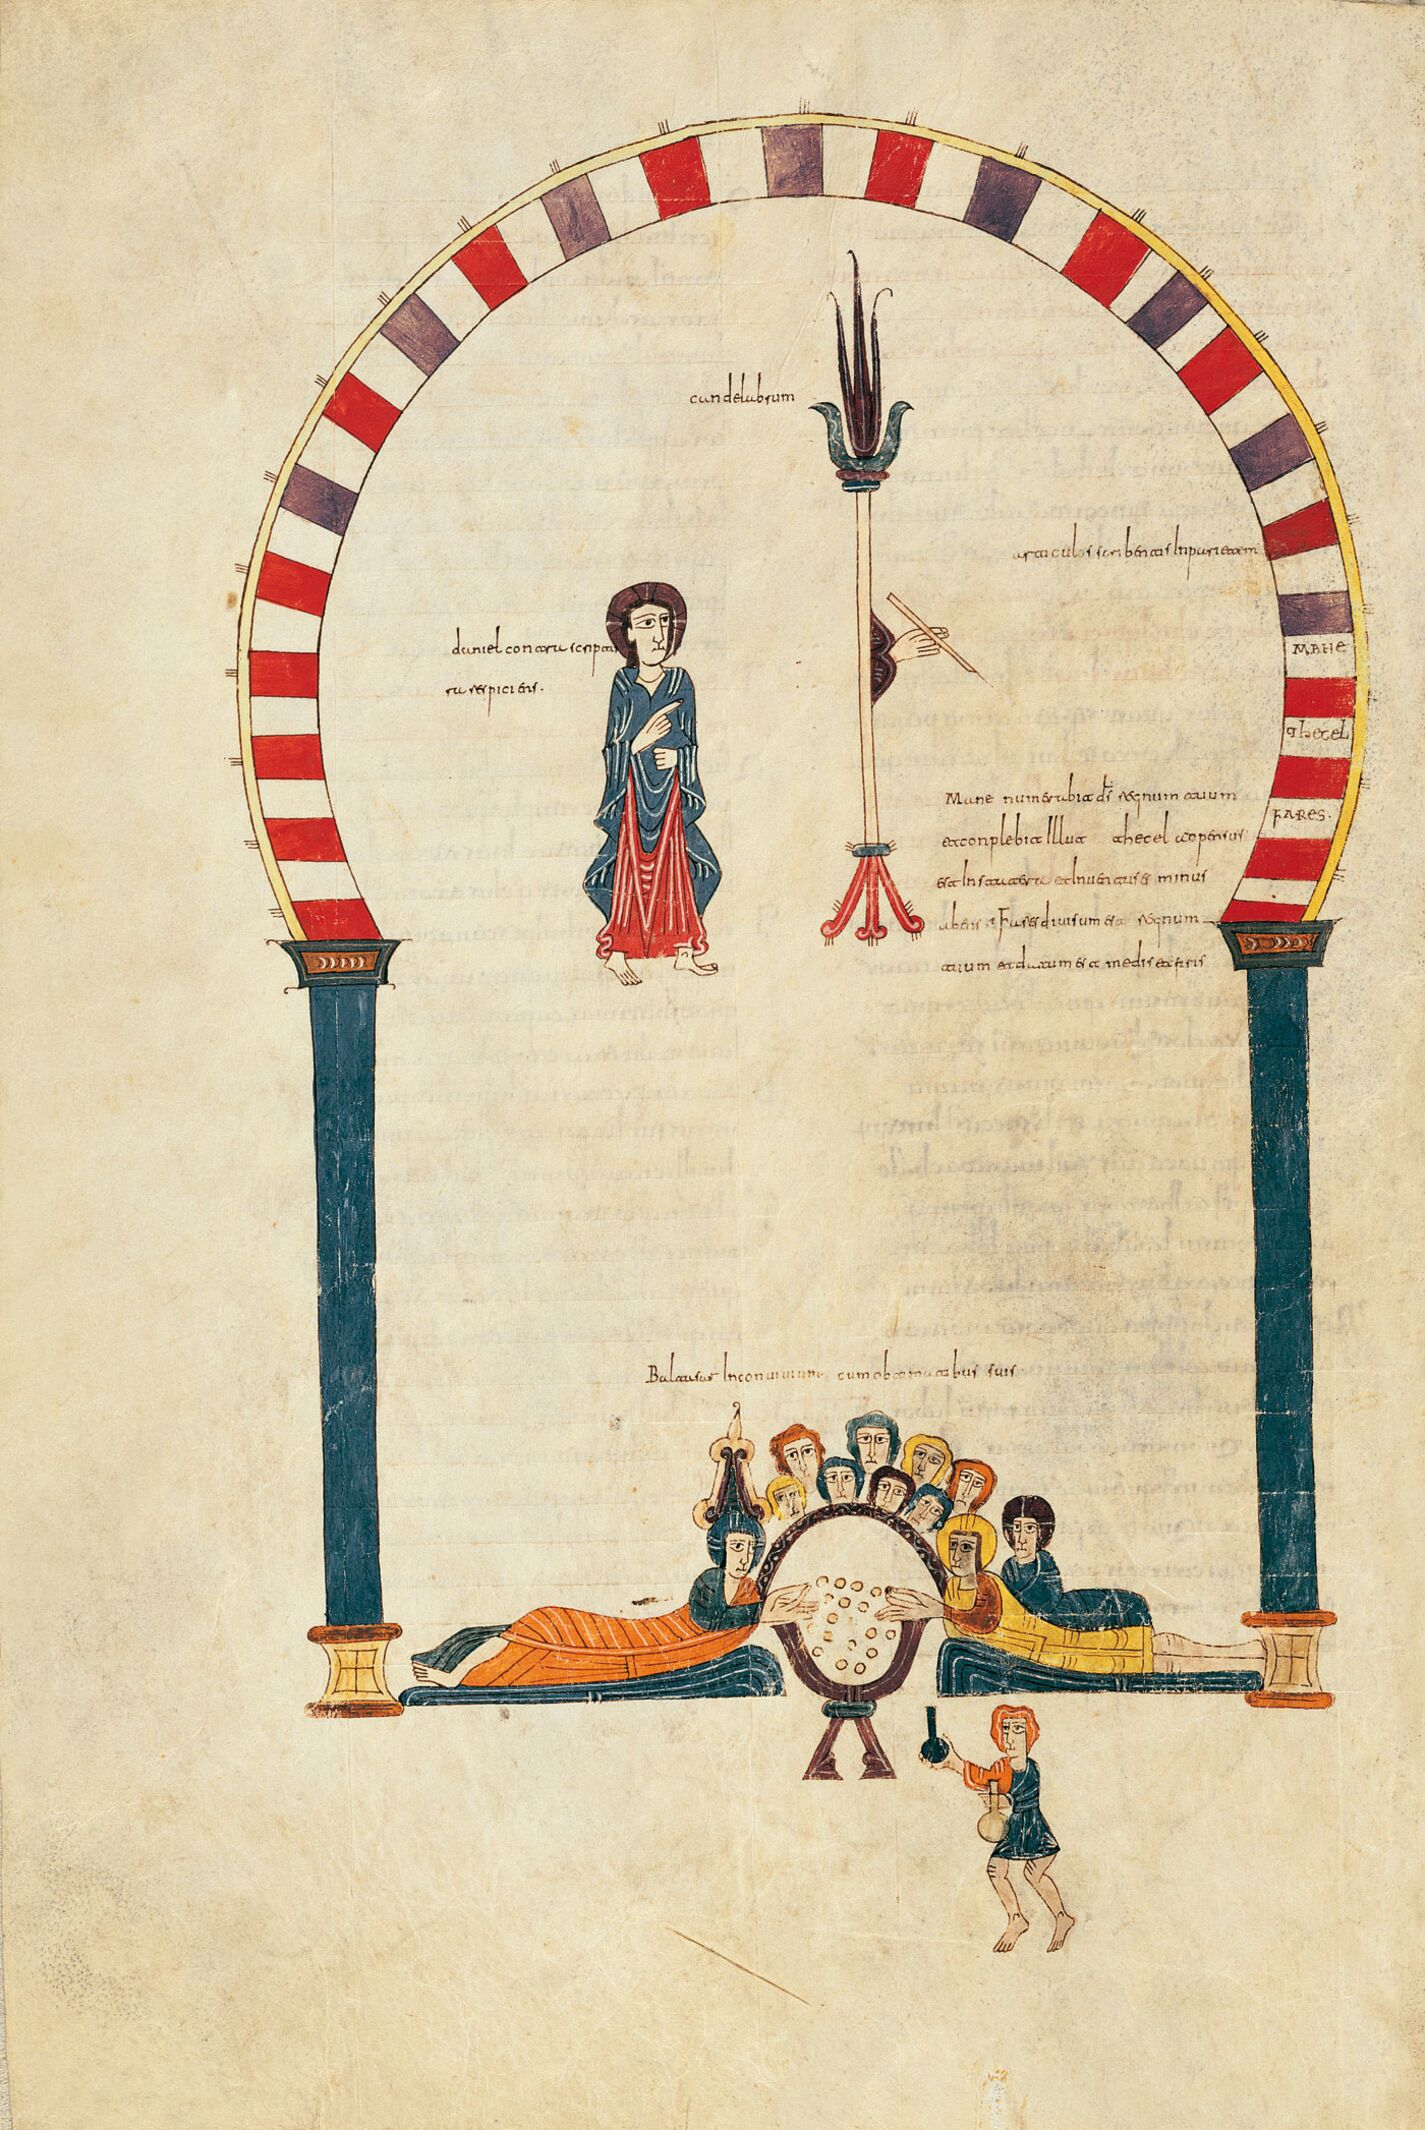 candelabrum
articulos scribentis In parietem
daniel contra scriptu
ra respiciens.
MANE
thecel
FARES.
Mane numerabit ds regnum tuum
et conplebit Illut thecel adpensus
est In statera et Inuentus es minus
abens Fares diuisum est regnum
tuum et datum est medis et persis
Baltasar In conuiuium cum obtimatibus suis